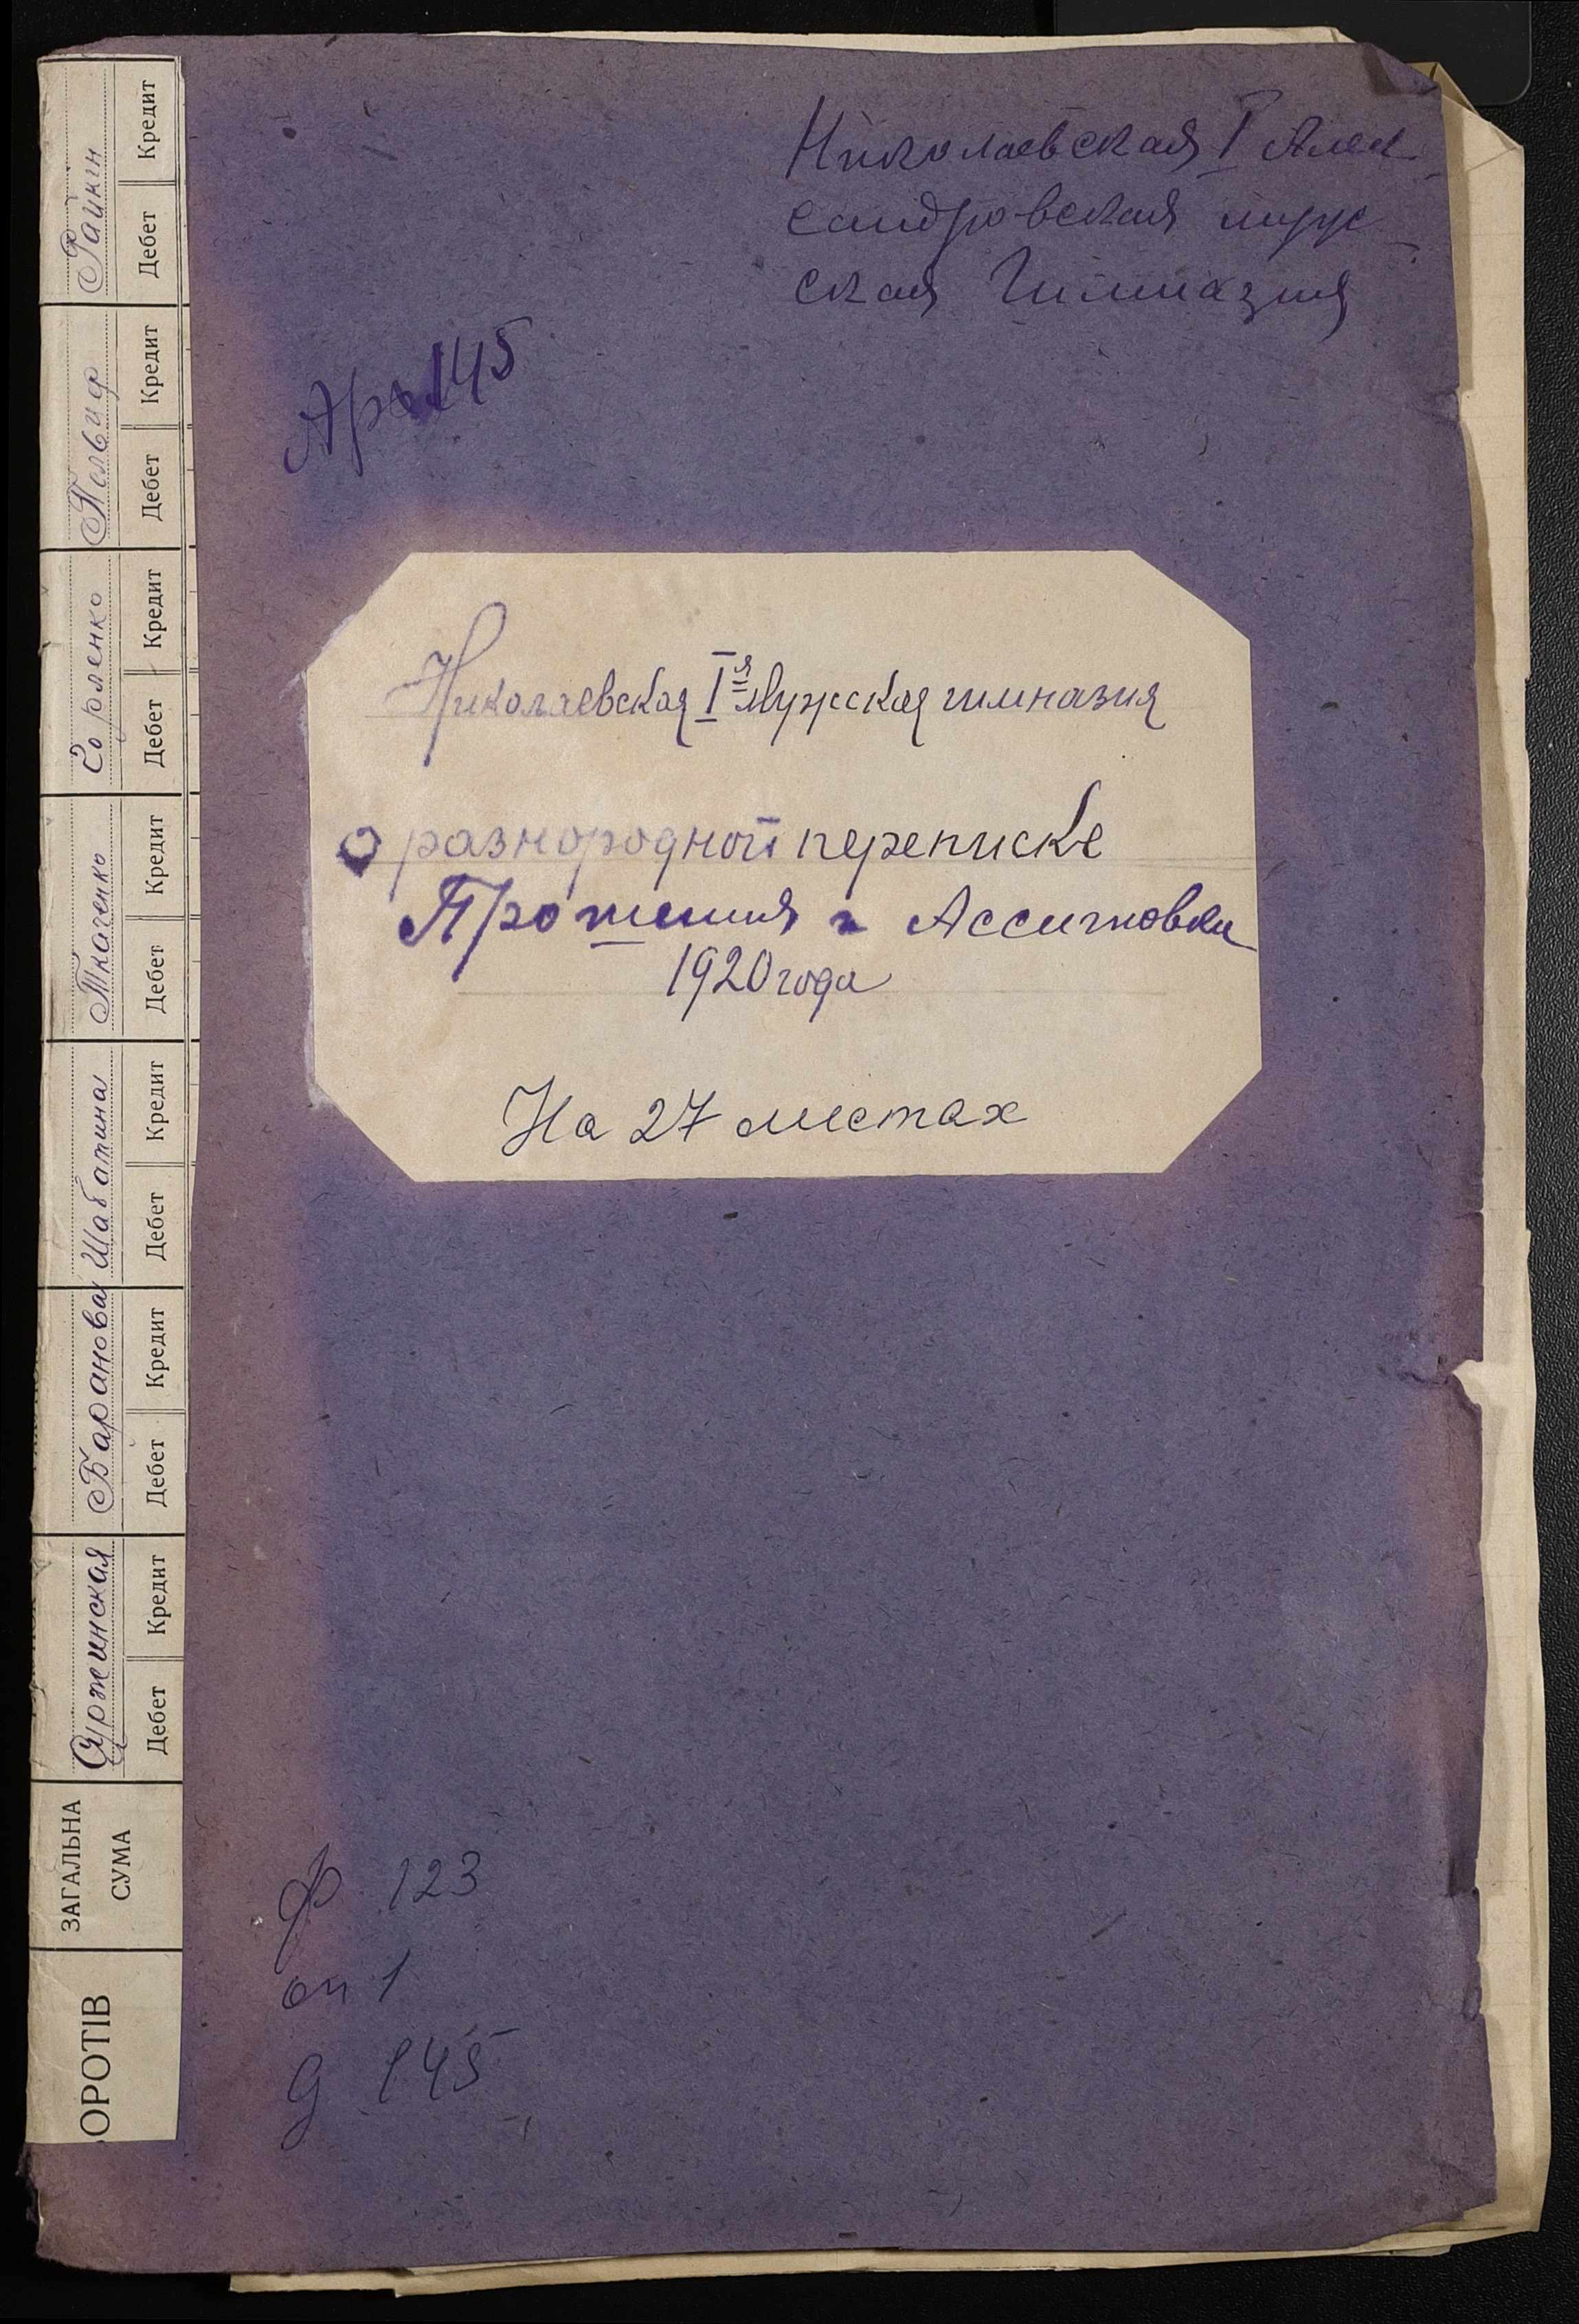 Николаевская I Алек-
сандровская муж-
ская Гимназия
Арх 145
Николаевская Iя Мужская гимназия
о разнородной переписке
Прошения и Ассигновки
1920 года
На 27 листах
ф 123
оп 1
д 145
Файкин
Дебет Кредит
Дебет Кредит
Дебет Кредит
Ткаченко
Дебет Кредит
Шабатина
Дебет Кредит
Баранова
Дебет Кредит
Дебет Кредит
ЗАГАЛЬНА
СУМА
ОРОТІВ